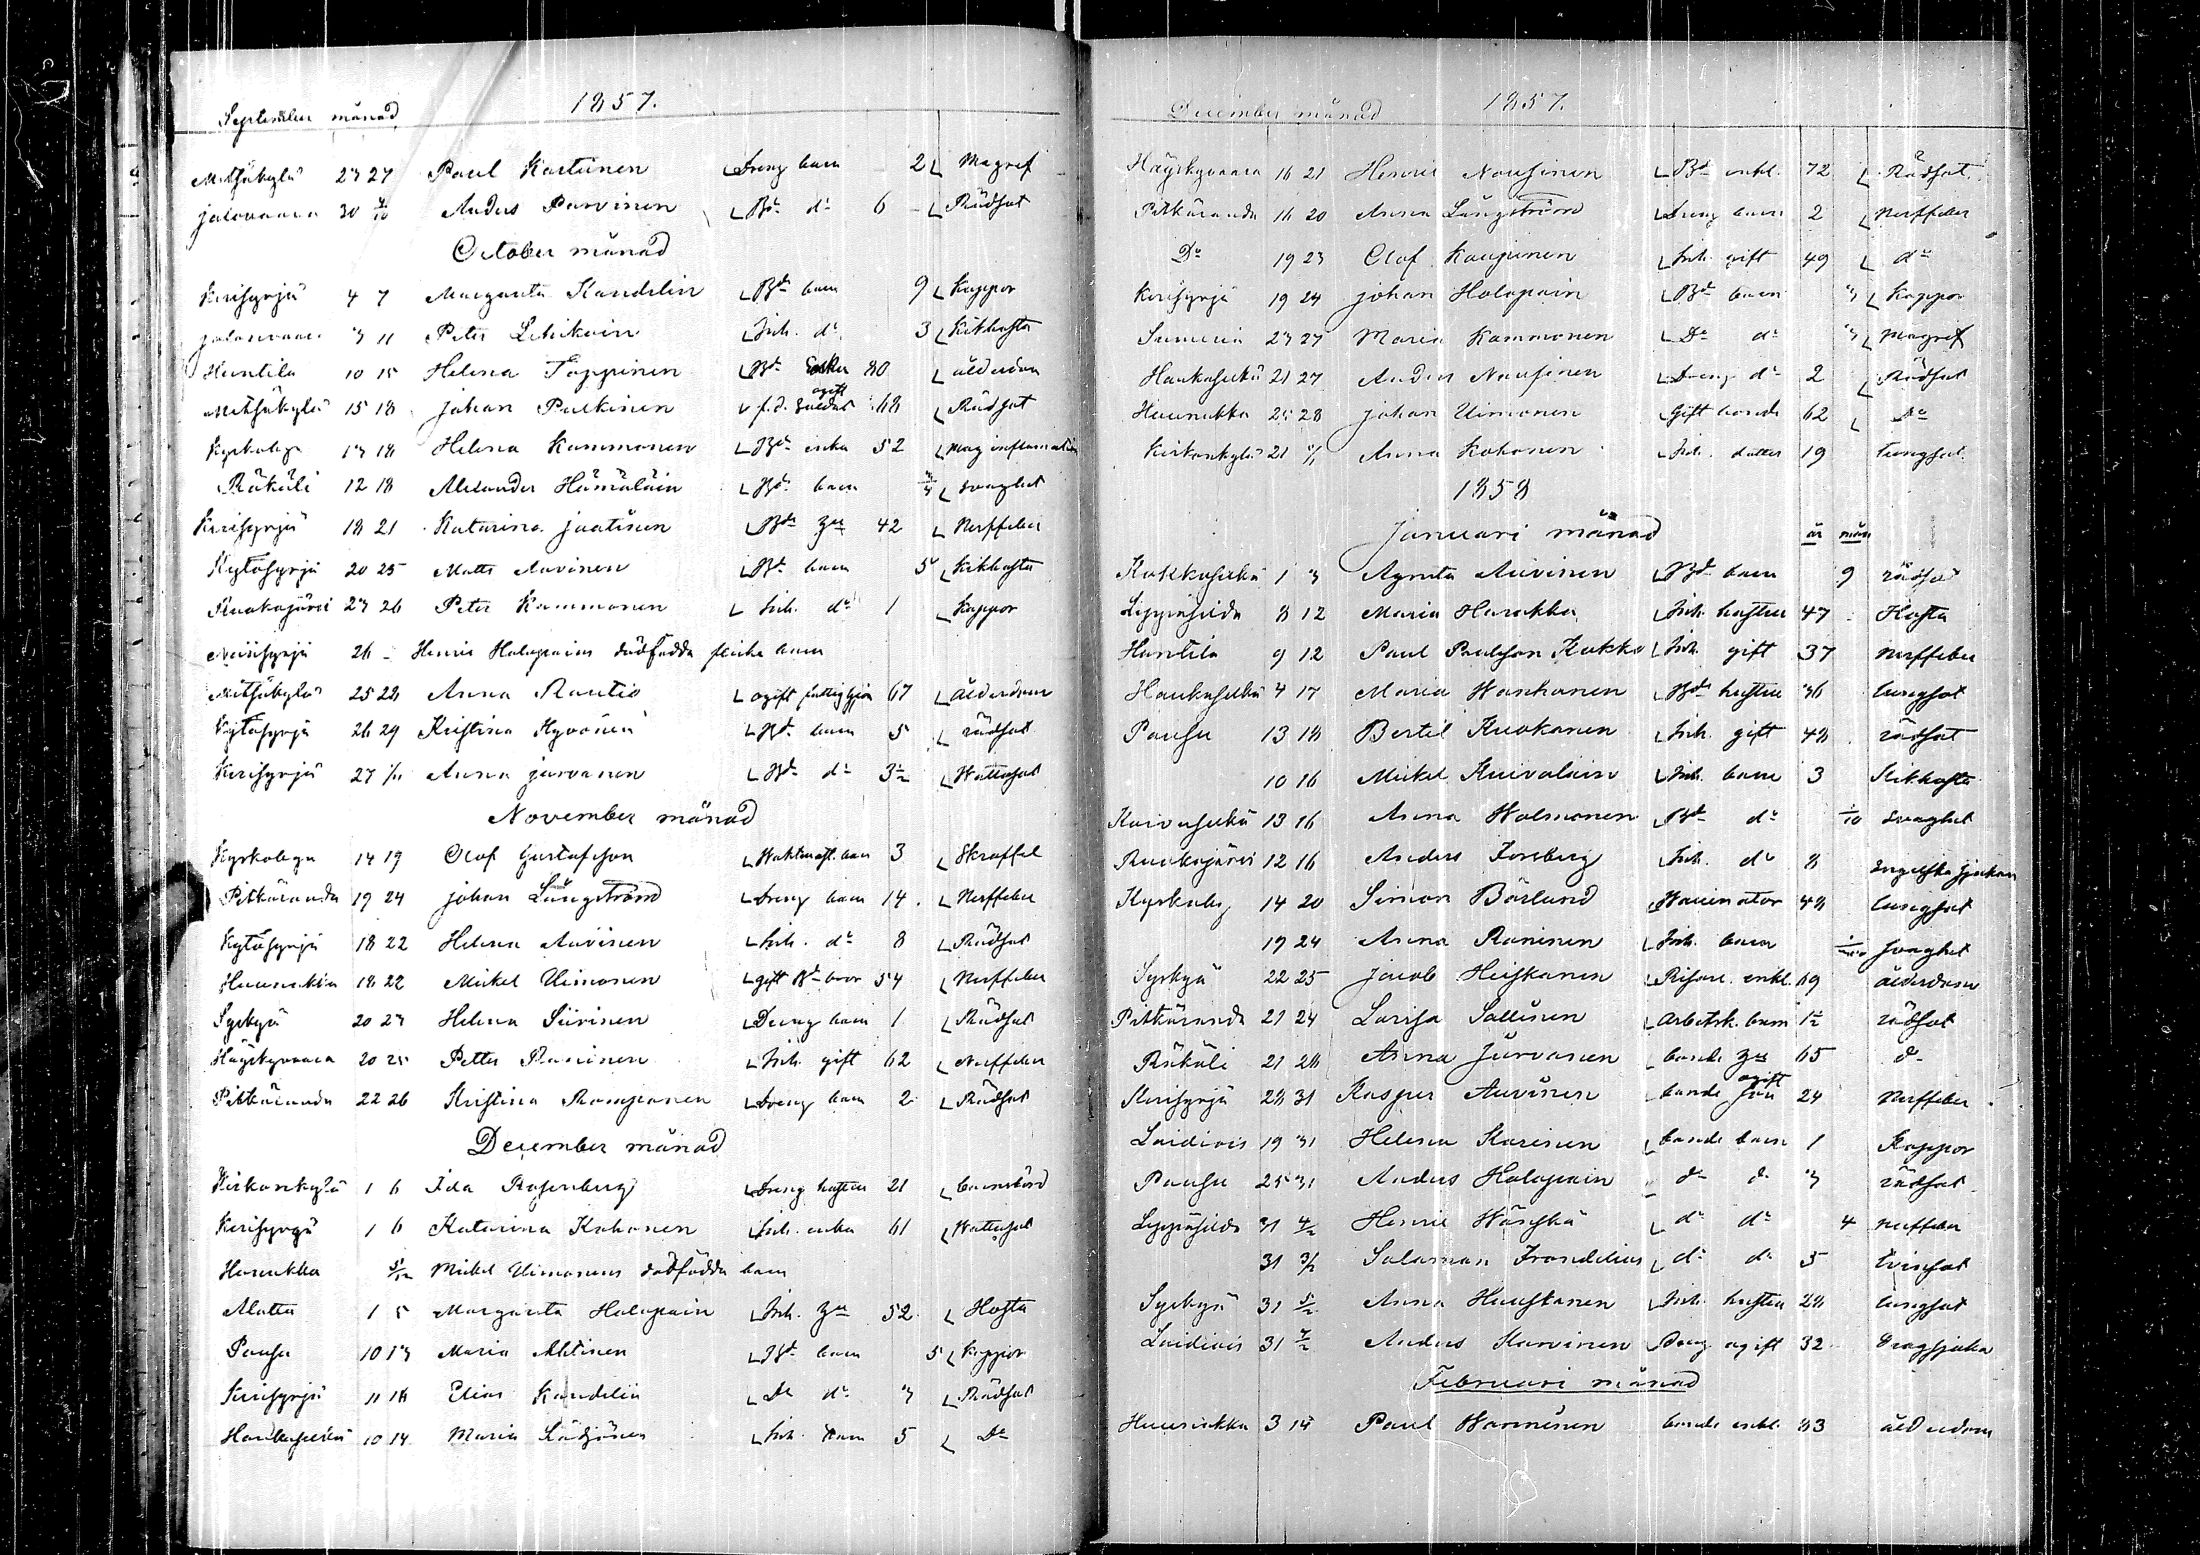 September månad 1857.
Mitsäkylä 23 27 Paul Kastinen Dreng barn 2 Magref
Jalovaara 30 4/10 Anders Parvinen Bd. do 6 Rödsot
October månad
Kirisyrjä 4 7 Margareta Kandelin Bd. barn 9 Koppor
Jalovaara 3 11 Peter Lehikoin Inh. do 3 Kikhosta
Huntila 10 15 Helena Toppinen Bd. Enka 80 ålderdom
Mitsäkylä 15 18 Johan Pulkinen f.d. Soldat ogift 68 Rödsot
Kyrkobyn 13 18 Helena Kammonen Bd. enka 52 Mag inflammation
Räkäli 12 18 Alexander Hämäläin Bd. barn svaghet
Kirisyrjä 18 21 Katarina Jaatinen Bd. 42 Nerffeber
Kytösyrjä 20 25 Matts Auvinen Bd. barn 5 Kikhosta
Ruokojärvi 23 26 Peter Kammonen Inh. do 1 Koppor
Niisyrjä 26 - Henric Holopains dödfödda flicke barn
Mitsäkylä 25 28 Anna Rautio ogift fattighjon 67 ålderdom
Kytösyrjä 26 29 Kristina Hyvönen Bd. barn 5 rödsot
Kirisyrjä 27 1/11 Anna Jarvanen Bd. do 3 1/2 Wattusot
November månad
Kyrkobyn 14 19 Olof Gustafsson Waktmäst. barn 3 Skroffel
Pitkäranda 19 24 Johan Långström Dreng barn 14 Nerffeber
Kytösyrjä 18 22 Helena Auvinen Inh. do 8 Rödsot
Huunukka 18 22 Mickel Uimonen gift Bd. bror 54 Nerffeber
Syskyä 20 23 Helena Siirinen Dreng barn 1 Rödsot
Häyskynvaara 20 25 Petter Raninen Inh. gift 62 Nerffeber
Pitkäranda 22 26 Kristina Romponen Dreng barn 2 Rödsot
December månad
Kirkonkylä 1 6 Ida Rosenberg Dreng hustru 21 barnsbörd
Kirisyrjä 1 6 Katarina Kokonen Inh. enka 61 Wattusot
Hunukka 5/12 Mickel Uimonens dödfödda barn
Alattu 1 5 Margareta Holopain Inh. 52 Hosta
Pausu 10 13 Maria Ahtinen Bd. barn 5 Koppor
Kirisyrjä 11 18 Elias Kandelin Do do 3 Rödsot
Haukaselkä 10 14 Maria Inh. barn 5 Do
December månad 1857.
Häyskynvaara 16 21 Henric Nousinen Bd. enkl. 72 Rödsot
Pitkäranda 16 20 Anna Långström Dreng barn 2 Nerffeber
Do 19 23 Olof Kaupinen Inh. gift 49 do
Kirisyrjä 19 24 Johan Holopain Bd. barn 3 Koppor
Sumeria 23 27 Maria Kammonen Do do 3 Magref
Haukaselkä 21 27 Anders Nousinen Dreng do 2 Rödsot
Huunukka 25 28 Johan Uimonen Gift bonde 62 Do
Kirkonkylä 21 Anna Kokonen Inh. dotter 19 lungsot
1858
Januari månad år mån
Kokkaselkä 1 3 Agneta Auvinen Bd. barn 9 rödsot
Leppäsilda 8 12 Maria Harakka Inh. hustru 47 Hosta
Huntila 9 12 Paul Paulsson Kukko Inh. gift 37 nerffeber
Haukaselkä 4 17 Maria Wanhanen Bd. hustru 36 lungsot
Pausu 13 18 Bertil Kuokanen Inh. gift 48 rödsot
10 16 Mickel Kuivalain Inh. barn 3 Kikhosta
Koivuselkä 13 16 Anna Wolmonen Bd. do 1/10 svaghet
Ruokojärvi 12 16 Anders Forsberg Inh. do 8 Engelska sjukan
Kyrkoby 14 20 Simon Börlund Waccinator 48 lungsot
19 24 Anna Raninen Inh. barn svaghet
Syskyä 22 25 Jacob Heiskanen enkl. 69 ålderdom
Pitkäranda 21 24 Lovisa Sallinen Arbetsk. barn 1 1/2 rödsot
Räkäli 21 28 Anna Järvanen bonde 65 do
Kirisyrjä 28 31 Kasper Auvinen bonde son ogift 24 Nerffeber
Laidiois 19 31 Helena Karinen bonde barn 1 Koppor
Pausu 25 31 Anders Holopain do do 3 rödsot
Leppäsilda 31 4/2 Henric Wäyskä do do 4 nerffeber
31 3/2 Salamon Frondelius do do 5 tvinsot
Syskyä 31 5/2 Anna Huuskanen Inh. hustru 28 lungsot
Laidiois 31 7/2 Anders Karvinen Dreng ogift 32 Dragsjuka
Februari månad
Huunukka 3 14 Paul Warmonen bonde enkl. 83 ålderdom